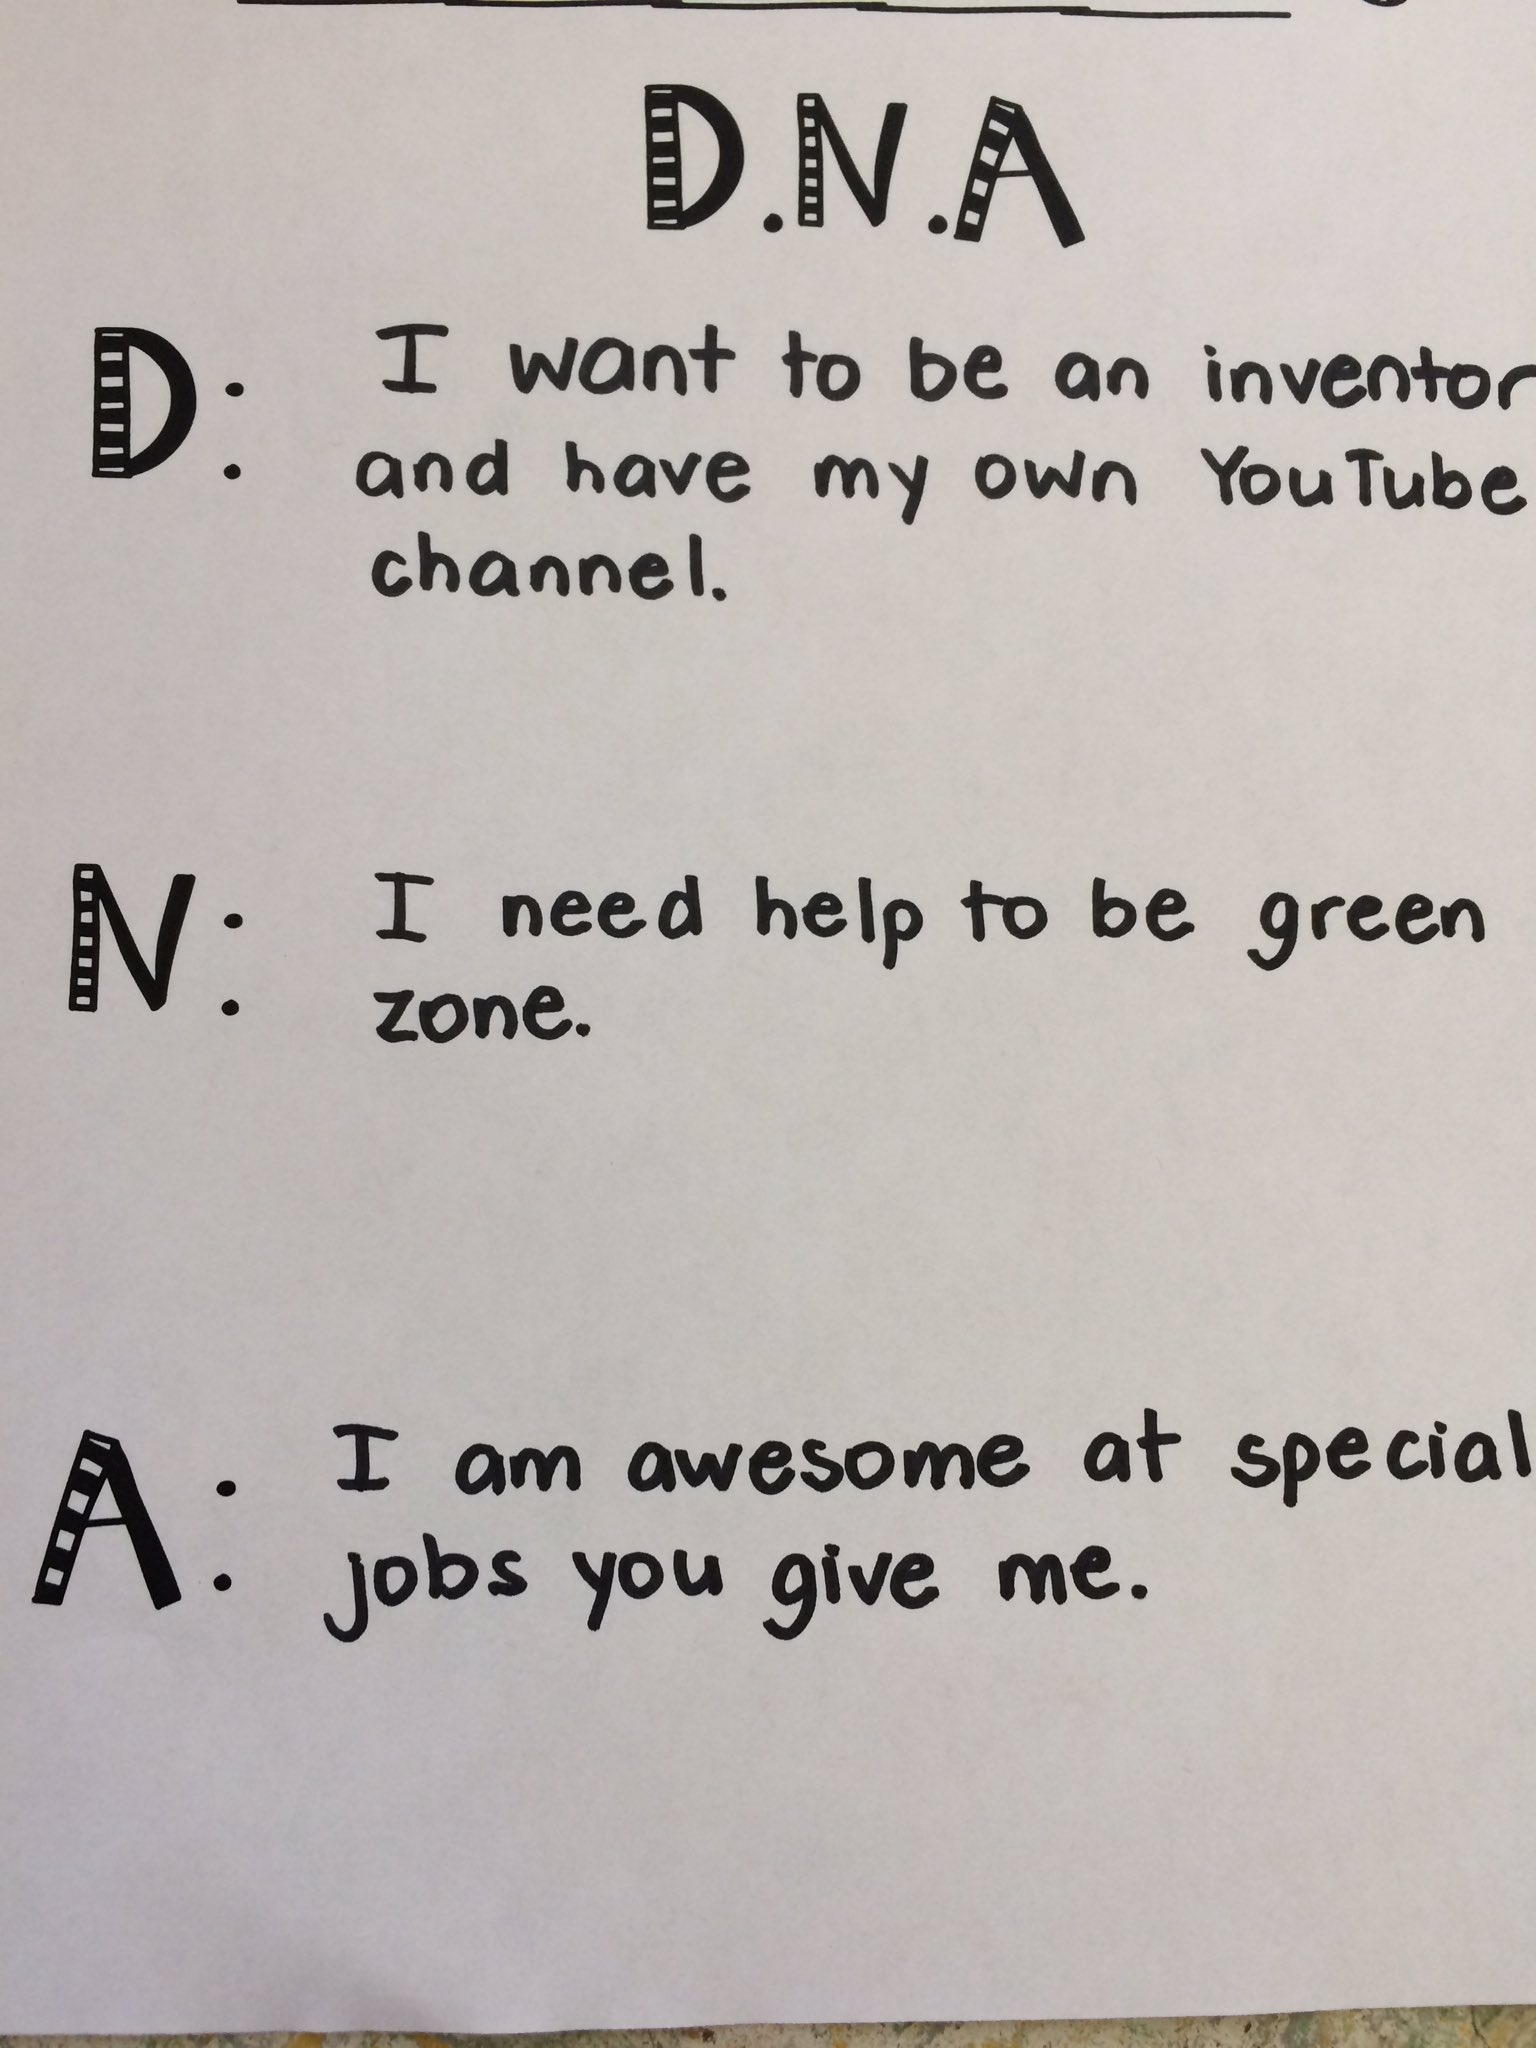 D.N.A
D: I want to be an inventor
and have my own YouTube
channel.
N: I need help to be green
zone.
A: I am awesome at special
jobs you give me.